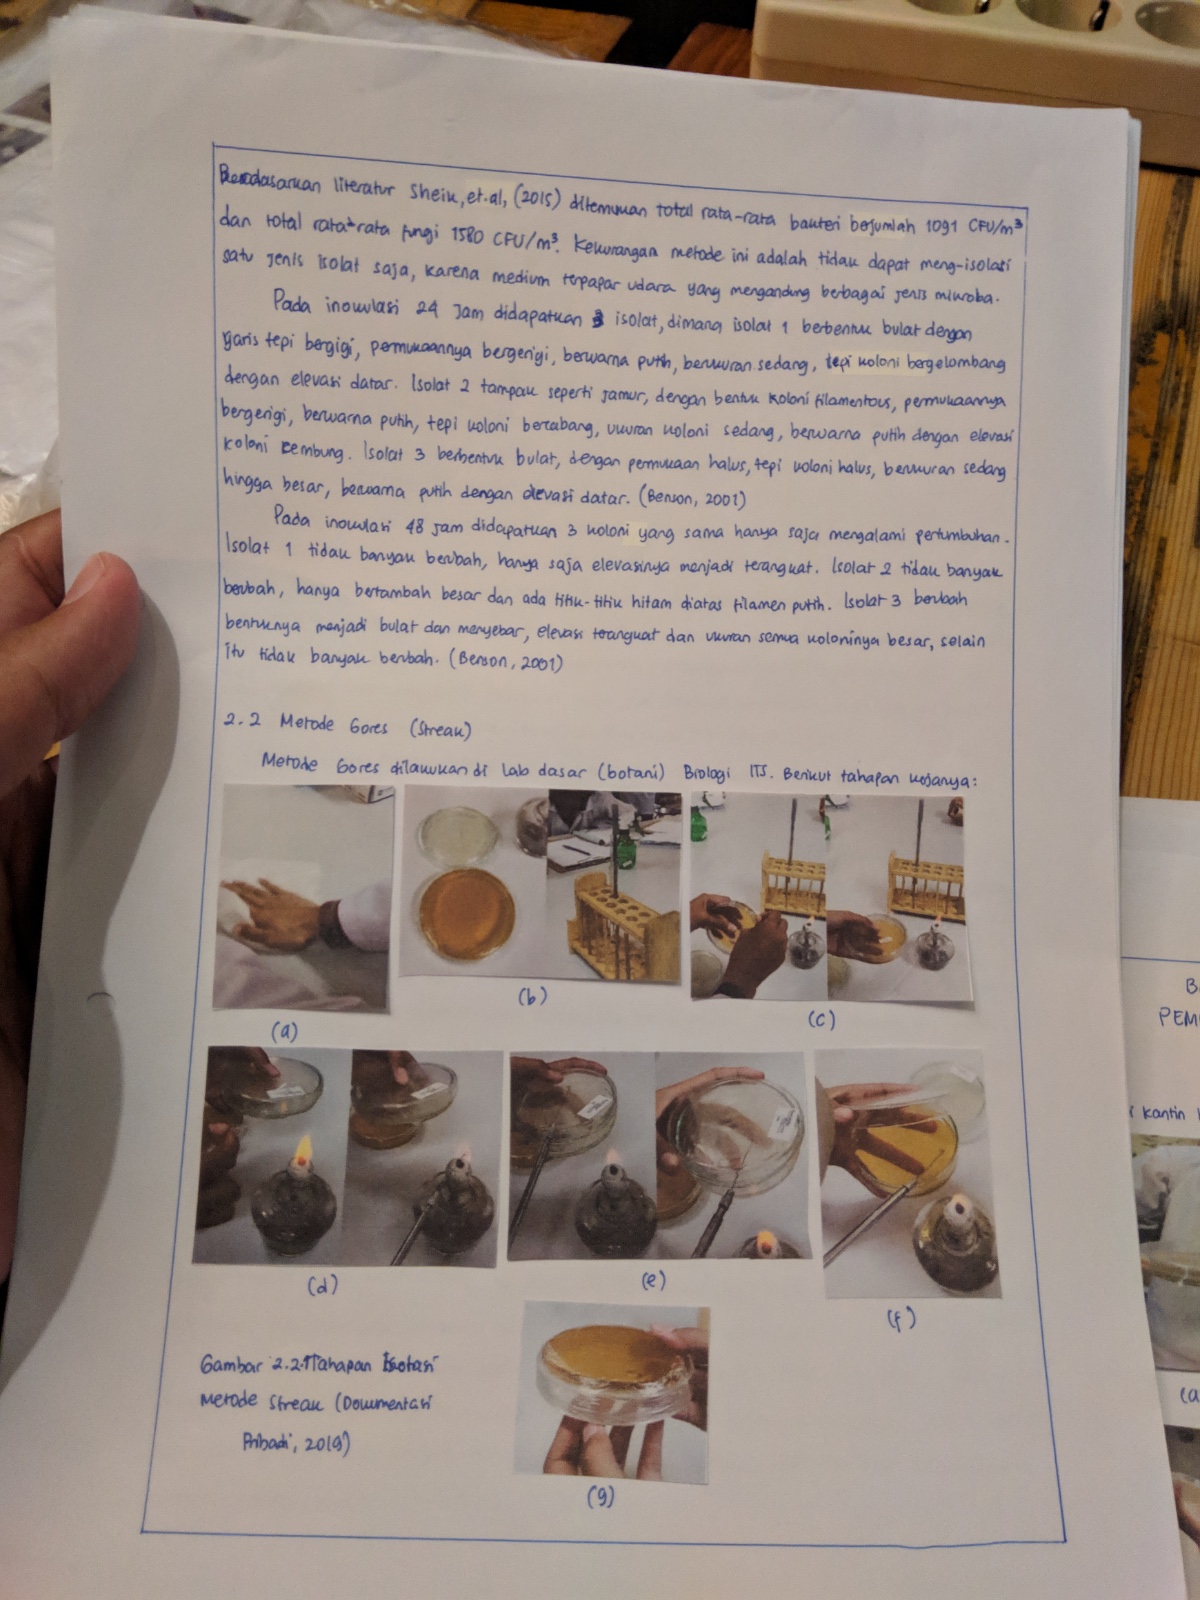 Berdasarkan literatur Sheik, et.al, (2015) ditemukan total rata-rata bakteri berjumlah 1091 CFU/m³
dan total rata-rata fungi 1580 CFU/m³. Kekurangan metode ini adalah tidak dapat meng-isolasi
satu jenis isolat saja, karena medium terpapar udara yang mengandung berbagai jenis mikroba.
Pada inokulasi 24 Jam didapatkan 3 isolat, dimana isolat 1 berbentuk bulat dengan
garis tepi bergigi, permukaannya bergerigi, berwarna putih, berukuran sedang, tepi koloni bergelombang
dengan elevasi datar. Isolat 2 tampak seperti jamur, dengan bentuk koloni filamentous, permukaannya
bergerigi, berwarna putih, tepi koloni bercabang, ukuran koloni sedang, berwarna putih dengan elevasi
koloni cembung. Isolat 3 berbentuk bulat, dengan permukaan halus, tepi koloni halus, berukuran sedang
hingga besar, berwarna putih dengan elevasi datar. (Benson, 2001)
Pada inokulasi 48 Jam didapatkan 3 koloni yang sama hanya saja mengalami pertumbuhan.
Isolat 1 tidak banyak berubah, hanya saja elevasinya menjadi terangkat. Isolat 2 tidak banyak
berubah, hanya bertambah besar dan ada titik-titik hitam diatas filamen putih. Isolat 3 berubah
bentuknya menjadi bulat dan menyebar, elevasi terangkat dan ukuran semua koloninya besar, selain
itu tidak banyak berubah. (Benson, 2001)
2.2 Metode Gores (Streak)
Metode Gores dilakukan di Lab dasar (botani) Biologi ITS. Berikut tahapan kerjanya:
(a)
(b)
(c)
(d)
(e)
(f)
Gambar 2.2.1 Tahapan Isolasi
Metode Streak (Dokumentasi
Pribadi, 2019)
(g)
B
PEM
i kantin
(a